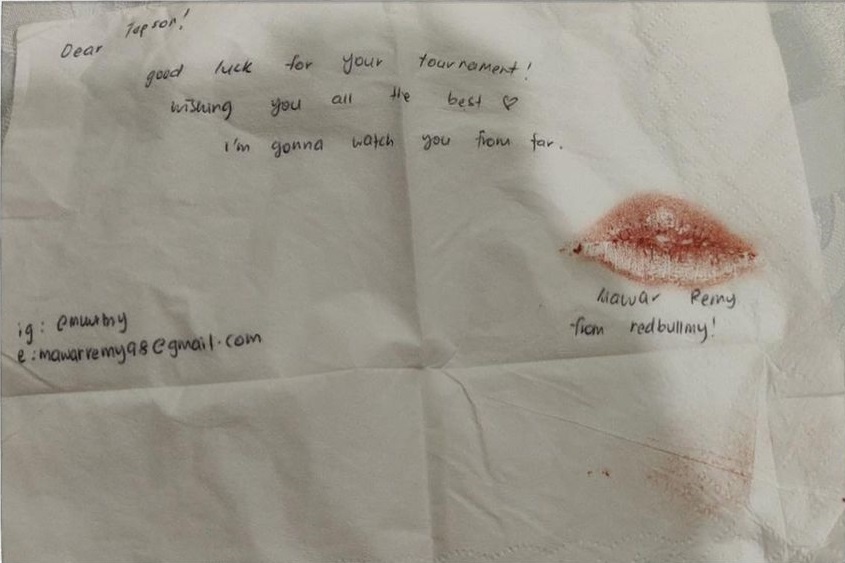 Dear Tepson!
good luck for your tournament!
wishing you all the best ♡
i'm gonna watch you from far.
Mawar Remy
from redbullmy!
ig:
e: mawarremy98@gmail.com